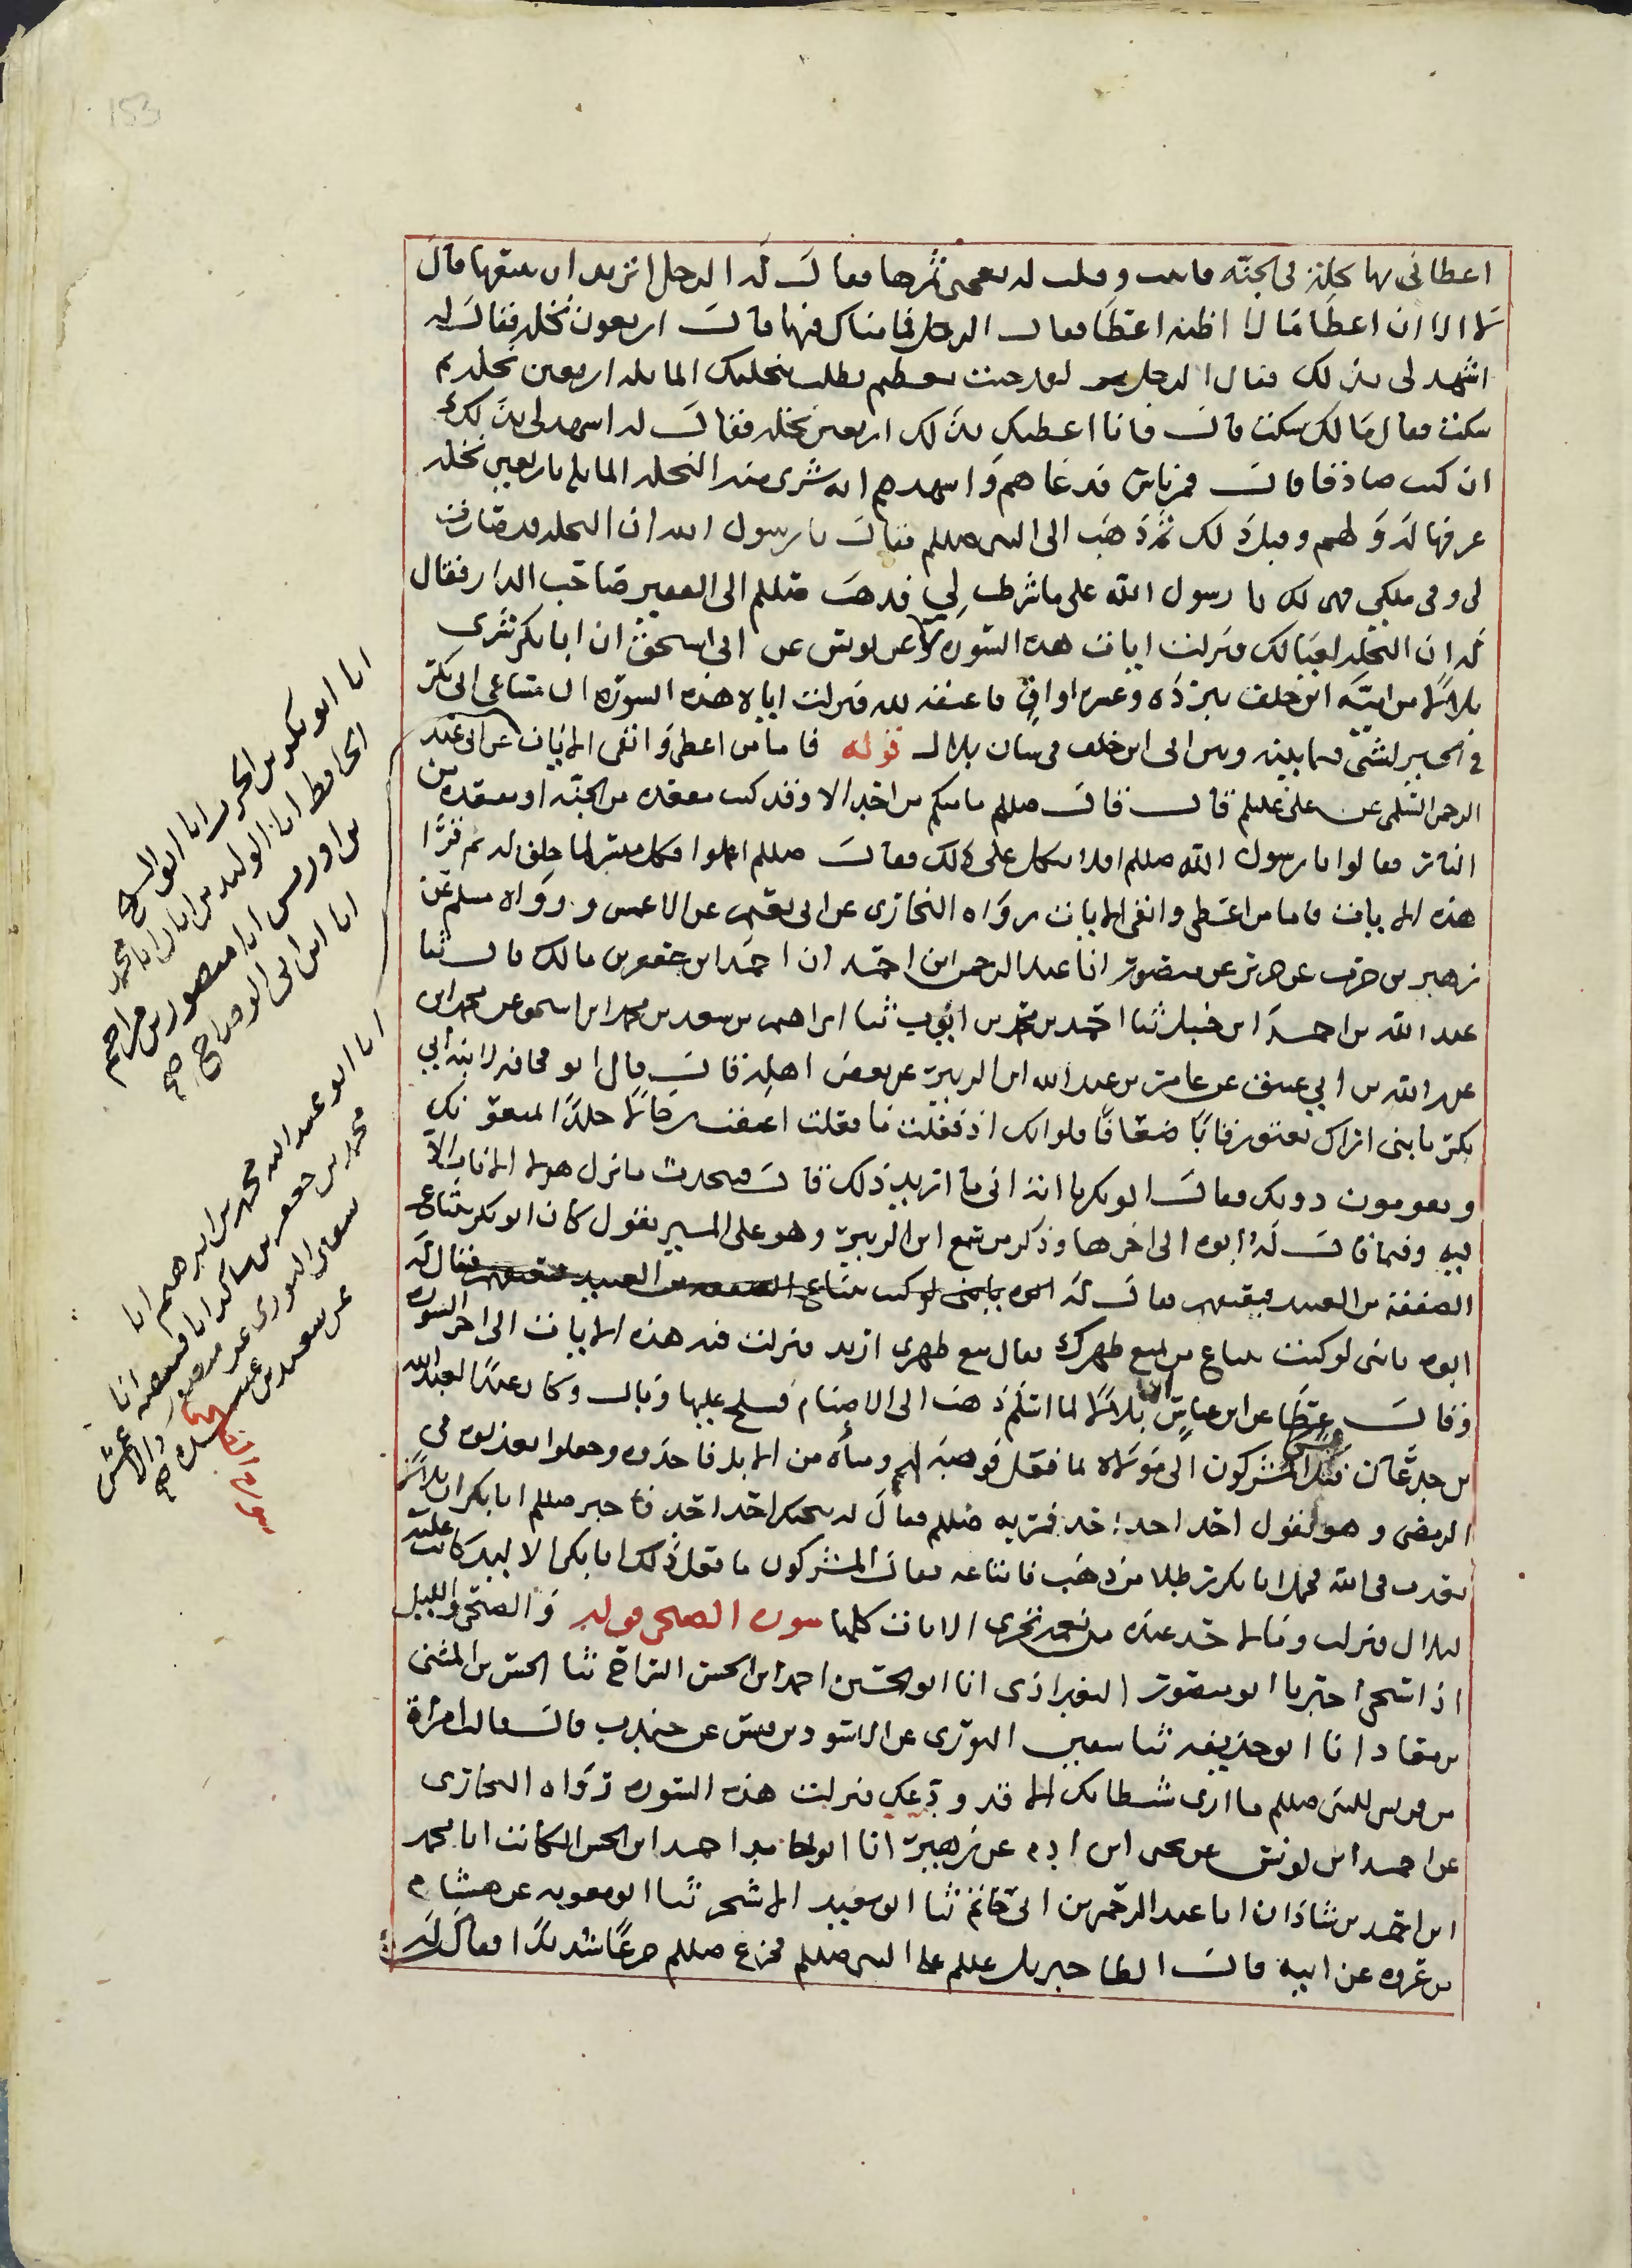 153
اعطاني بها نخلة في الجنة فابيت وقلت له يعجبني ثمرها فقال له الرجل اتريد ان بيعها قال
لا الا ان اعطا مالا اظنه اعطا فقال الرجل فما مناك فيها قال اربعون نخلة فقال له
اشهد لي بذلك فقال الرجل لقد جئت بعظيم تطلب بنخلتك المايلة اربعين نخلة ثم
سكت فقال مالك سكت قال فانا اعطيك بذلك اربعين نخلة فقال له اشهد لي بذلك
ان كنت صادقا قال فمر ناس فدعاهم واشهدهم انه شرى منه النخلة المايلة باربعين نخلة
ثم ذهب الى النبي صللم فقال يا رسول الله ان النخلة قد صارت
لي وفي ملكي فهي لك يا رسول الله على ما شرطت لي فذهب صللم الى الفقير صاحب الدار فقال
له ان النخلة لعيالك فنزلت ايات هذه السورة عن يونس عن ابي اسحق ان ابا بكر شرى
بلالا من امية ابن خلف ببردة وعشر اواق فاعتقه لله فنزلت اياه هذه السورة ان مساعي ابي بكر
في الخير لشتى ما بينه وبين ابي ابن خلف في شان بلال قوله فاما من اعطى واتقى الايات عن ابي عبد
الرحمن السلمي عن علي عليلم قال قال صللم ما منكم من احد الا وقد كتب مقعده من الجنة او مقعده من
النار فقالوا يا رسول الله صللم افلا نتكل على ذلك فقال صللم اعملوا فكل ميسر لما خلق له ثم قرا
هذه الايات فاما من اعطى واتقى الايات رواه البخاري عن ابي نعيم عن الاعمش ورواه مسلم عن
زهير بن حرب عن جرير عن منصور انا عبد الرحمن ابن احمد ان احمد ابن جعفر بن مالك قال ثنا
عبد الله بن احمد ابن حنبل ثنا احمد بن محمد بن ايوب ثنا ابراهيم بن سعد بن محمد ابن اسحق عن محمد ابن
عبد الله بن ابي عتيق عن عامر بن عبد الله ابن الزبير عن بعض اهله قال قال ابو قحافة لابنه ابي
بكر يا بني اراك تعتق رقابا ضعافا فلو انك اذ فعلت ما فعلت اعتقت رجالا جلدا يمنعونك
ويقومون دونك فقال ابو بكر يا ابة اني ما اريد ذلك قال فتحدث ما نزل هولا الايات الا
فيه وفيما قال له ابوه الى اخرها وذكر من سمع ابن الزبير وهو على المنبر يقول كان ابو بكر يبتاع
الضعفة من العبيد فيعتقهم فقال له
ابوه يا بني لو كنت تبتاع من يمنع ظهرك فقال منع ظهري اريد فنزلت فيه هذه الايات الى اخر السورة
وقال عطا عن ابن عباس بلالا لما اسلم ذهب الى الاصنام فسلح عليها وبال وكان عبدا لعبد الله
بن جدعان فشكا المشركون الى مولاه لما فعل فوهبه لهم ومأة من الابل فاخذوه وجعلوا يعذبوه في
الرمضى وهو يقول احد احد احد فمر به صللم فقال له ينجيك احد احد فاخبر صللم ابا بكر ان بلالا
يعذب في الله فحمل ابا بكر رطلا من ذهب فابتاعه فقال المشركون ما فعل ذلك ابا بكر الا ليد كانت عليه
لبلال فنزلت وما لاحد عنده من نعمة تجزى الايات كلها سورة الضحى قوله والضحى والليل
اذا سجى اخبرنا ابو منصور البغدادي انا ابو الحسين احمد ابن الحسن السراج ثنا الحسن بن المثنى
بن معاذ انا ابو حذيفة ثنا سفين الثوري عن الاسود بن قيس عن جندب قال قالت امراة
من قريش للنبي صللم ما ارى شيطانك الا قد ودعك فنزلت هذه السورة رواه البخاري
عن احمد ابن يونس عن يحيى ابن ادم عن زهير انا ابو حامد احمد ابن الحسن الكاتب انا محمد
ابن احمد بن شاذان انا عبد الرحمن بن ابي حاتم ثنا ابو سعيد الاشج ثنا ابو معوية عن هشام
بن عروة عن ابيه قال ابطا جبريل عليلم على النبي صللم فجزع صللم جزعا شديدا فقال له
انا ابو بكر بن الحرث انا ابو الشيخ
الحافظ انا الوليد بن ابان انا محمد
بن ادريس انا منصور بن مزاحم
انا ابن ابي الوضاح صح
انا ابو عبد الله محمد بن ابرهيم انا
محمد بن جعفر بن انا قبيصة انا
سفين الثوري عن منصور والاعمش
عن سعد بن عبيدة صح